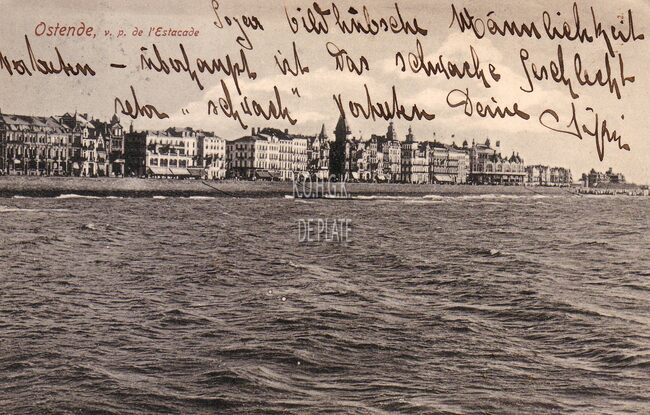 Ostende, v. p. de l'Estacade
Sogar bildhübsche Männlichkeit
vorbeuten – überhaupt ist das schwache Geschlecht
sehr "schwach" vorbeuten Deine
KOHGK
DE PLATE